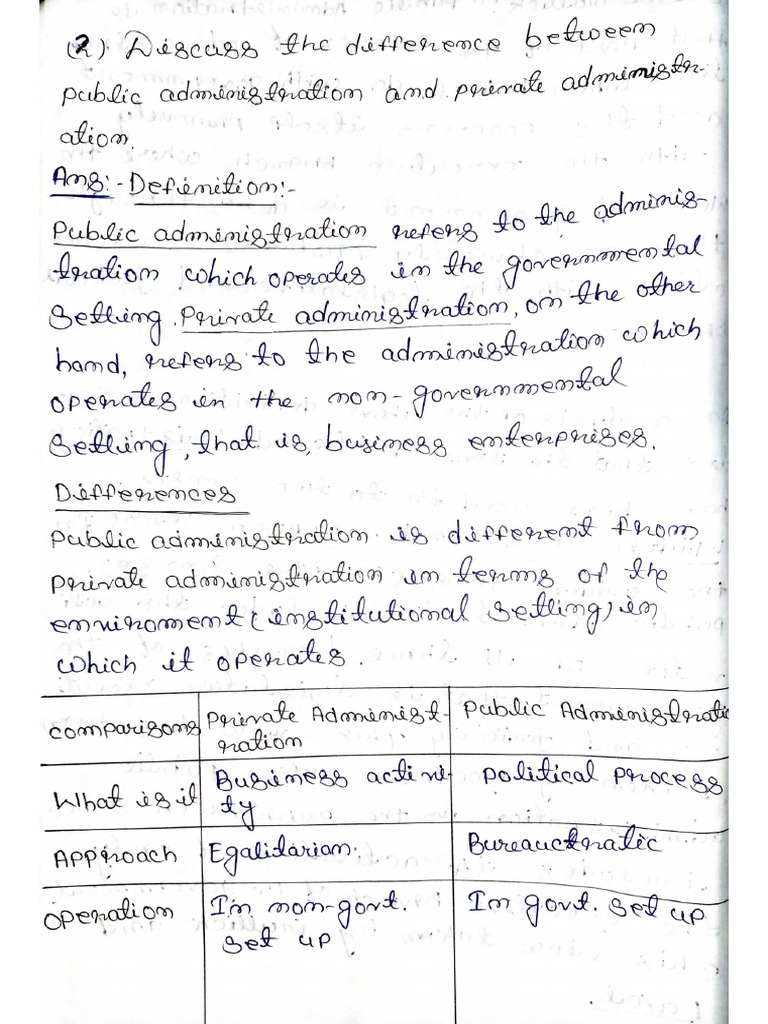 (2). Discuss the difference between
public administration and private administr-
ation.
Ans:- Definition:-
Public administration refers to the adminis-
tration which operates in the governmental
setting. Private administration, on the other
hand, refers to the administration which
operates in the non-governmental
setting, that is, business enterprises.
Differences
Public administration is different from
private administration in terms of the
enviroment (institutional setting) in
which it operates.
Comparisons Private Administ- Public Administratio
ration
What is it Business activi- Political process
ty
Approach Egalitarian. Bureaucratic
Operation In non-govt. In govt. set up
set up.